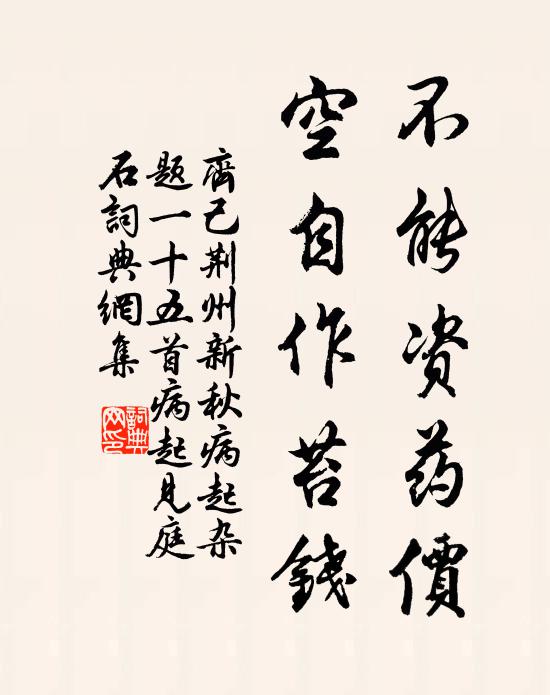 不能资药價
空自作苔錢
齊己荆州新秋病起杂
题一十五首病起見庭
石詞典網集
詞典網印